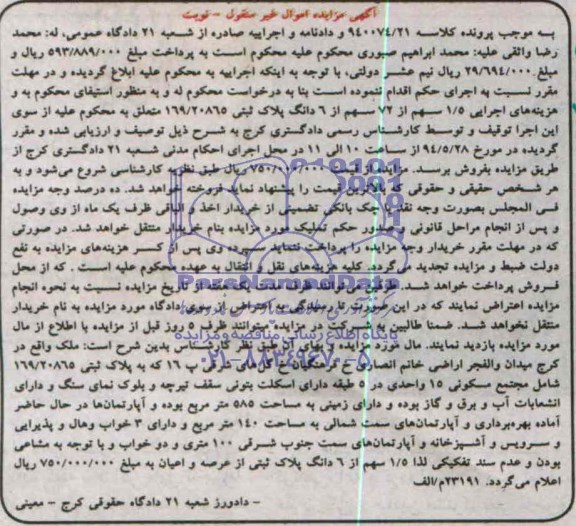 آگهی مزایده اموال غیر منقول - نوبت
به موجب پرونده کلاسه ۹۴۰۰۷۴/۲۱ و دادنامه و اجراییه صادره از شعبه ۲۱ دادگاه عمومی، له: محمد
رضا واثقی علیه: محمد ابراهیم صبوری محکوم علیه محکوم است به پرداخت مبلغ ۵۹۳/۸۸۹/۰۰۰ ریال و
مبلغ ۲۹/۶۹۴/۰۰۰ ریال نیم عشر دولتی، با توجه به اینکه اجراییه به محکوم علیه ابلاغ گردیده و در مهلت
مقرر نسبت به اجرای حکم اقدام ننموده است بنا به درخواست محکوم له و به منظور استیفای محکوم به و
هزینه‌های اجرایی ۱/۵ سهم از ۷۲ سهم از ۶ دانگ پلاک ثبتی ۱۶۹/۲۰۸۶۵ متعلق به محکوم علیه از سوی
این اجرا توقیف و توسط کارشناس رسمی دادگستری کرج به شرح ذیل توصیف و ارزیابی شده و مقرر
گردیده در مورخ ۹۴/۵/۲۸ از ساعت ۱۰ الی ۱۱ در محل اجرای احکام مدنی شعبه ۲۱ دادگستری کرج از
طریق مزایده بفروش برسد. مزایده از قیمت ۷۵۰/۰۰۰/۰۰۰ ریال طبق نظریه کارشناسی شروع می‌شود و به
هر شخص حقیقی و حقوقی که بالاترین قیمت را پیشنهاد نماید فروخته خواهد شد. ده درصد وجه مزایده
فی المجلس بصورت وجه نقد یا چک بانکی تضمینی از خریدار اخذ و الباقی ظرف یک ماه از وی وصول
و پس از انجام مراحل قانونی و صدور حکم تملیک مورد مزایده بنام خریدار منتقل خواهد شد. در صورتی
که در مهلت مقرر خریدار وجه مزایده را پرداخت ننماید سپرده وی پس از کسر هزینه‌های مزایده به نفع
دولت ضبط و مزایده تجدید می‌گردد. کلیه هزینه‌های نقل و انتقال به عهده محکوم علیه است. که از محل
فروش پرداخت خواهد شد. طرفین میتوانند ظرف مدت یک هفته از تاریخ مزایده نسبت به نحوه انجام
مزایده اعتراض نمایند که در این صورت تا رسیدگی به اعتراض از سوی دادگاه مورد مزایده به نام خریدار
منتقل نخواهد شد. ضمنا طالبین به شرکت در مزایده میتوانند ظرف ۵ روز قبل از مزایده با اطلاع از مال
مورد مزایده بازدید نمایند. مال مورد مزایده و بهای آن طبق نظر کارشناس بدین شرح است: ملک واقع در
کرج میدان والفجر اراضی خانم انصاری خ فرهنگیان خ گل‌های شرقی پ ۱۶ که به پلاک ثبتی ۱۶۹/۲۰۸۶۵
شامل مجتمع مسکونی ۱۵ واحدی در ۵ طبقه دارای اسکلت بتونی سقف تیرچه و بلوک نمای سنگ و دارای
انشعابات آب و برق و گاز بوده و دارای زمینی به ساحت ۵۸۵ متر مربع بوده و آپارتمان‌ها در حال حاضر
آماده بهره‌برداری و آپارتمان‌های سمت شمالی به مساحت ۱۴۰ متر مربع و دارای ۳ خواب وهال و پذیرایی
و سرویس و آشپزخانه و آپارتمان‌های سمت جنوب شرقی ۱۰۰ متری و دو خواب و با توجه به مشاعی
بودن و عدم سند تفکیکی لذا ۱/۵ سهم از ۶ دانگ پلاک ثبتی از عرصه و اعیان به مبلغ ۷۵۰/۰۰۰/۰۰۰ ریال
اعلام می‌گردد. ۲۳۱۹۱/م/الف
- دادورز شعبه ۲۱ دادگاه حقوقی کرج - معینی
پایگاه اطلاع رسانی مناقصه و مزایده
۰۲۱-۸۸۳۴۹۶۷۰-۵